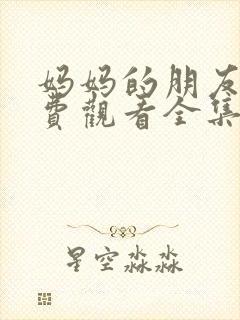 妈妈的朋友
费觀看全集
星空淼淼